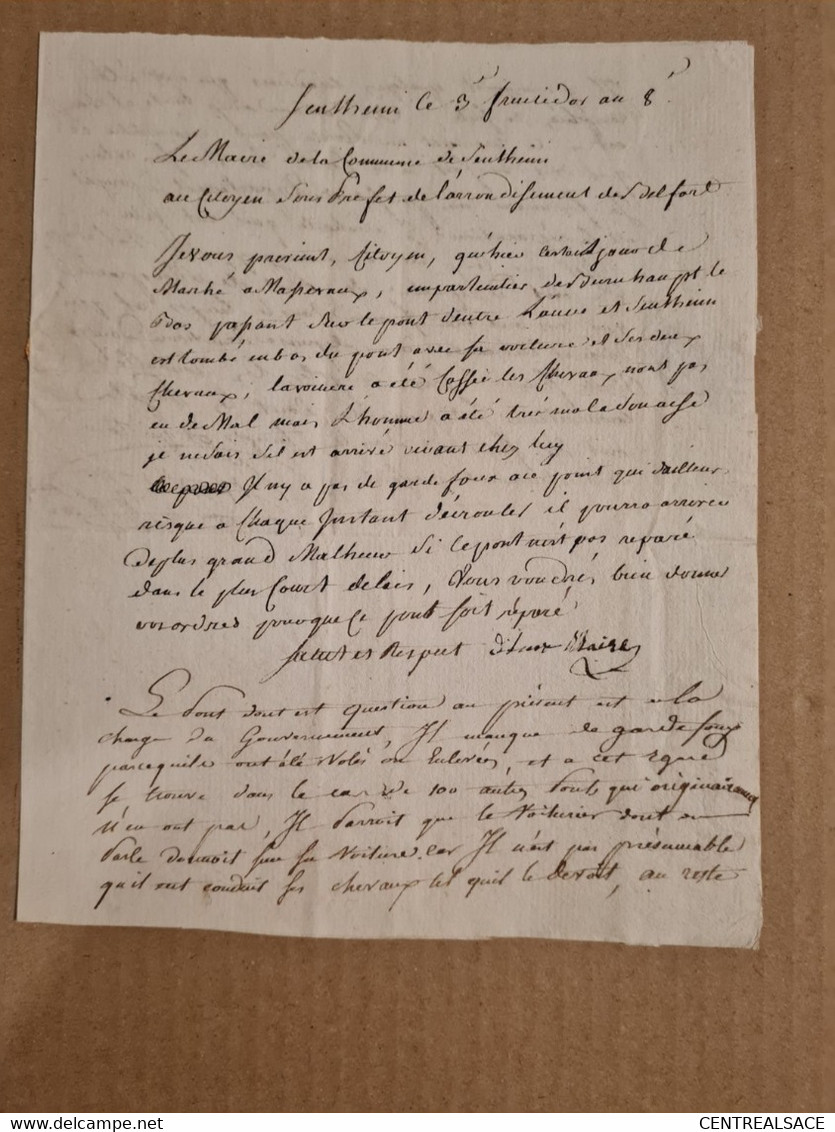 Sentheim le 3 fructidor an 8
Le Maire de la Commune de Sentheim
au Citoyen Sous Prefet de l'arrondisement de Belfort
Je vous previent, Citoyen, qu'hier jour de
Marché a Massevaux, un particulier de Burnhaupt le
Bas passant sur le pont d'entre Lauw et Sentheim
est tombé en bas du pont avec sa voiture et ses deux
Chevaux, la voiture a été Cassée les Chevaux nont pas
eu de Mal mais L'homme a été tres mal
je ne sais s'il est arrivé vivant chez luy
Il ny a pas de garde foux a ce point qui d'ailleur
risque a Chaque Instant d'écrouler il pourra arriver
de plus grand Malheur si le pont n'est pas reparé
dans le plus Court delais, Vous voudrés bien donner
vos ordres pour que Ce pont soit réparé
salut et Respect Maire
Le Pont dont est question au présent est a la
charge du Gouvernement, Il manque de garde foux
parcequils ont été Volés ou Enlevées, et a cet egard
se trouve dans le cas de 100 autres Ponts qui originairement
n'en ont pas, Il Parroit que le Voiturier dont on
Parle dormoit sur sa Voiture car Il n'est pas présumable
qu'il eut conduit ses chevaux tel quil le devoit, au reste
CENTREALSACE